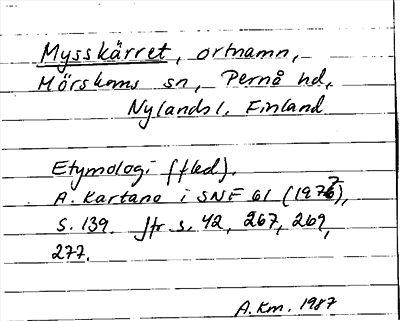 Mysskärret, ortnamn,
Mörskoms sn, Pernå hd,
Nylands l. Finland
Etymologi (fled).
A. Kartano i SNF 61 (1977),
s. 139. Jfr s. 42, 267, 269,
277.
A.Km. 1987